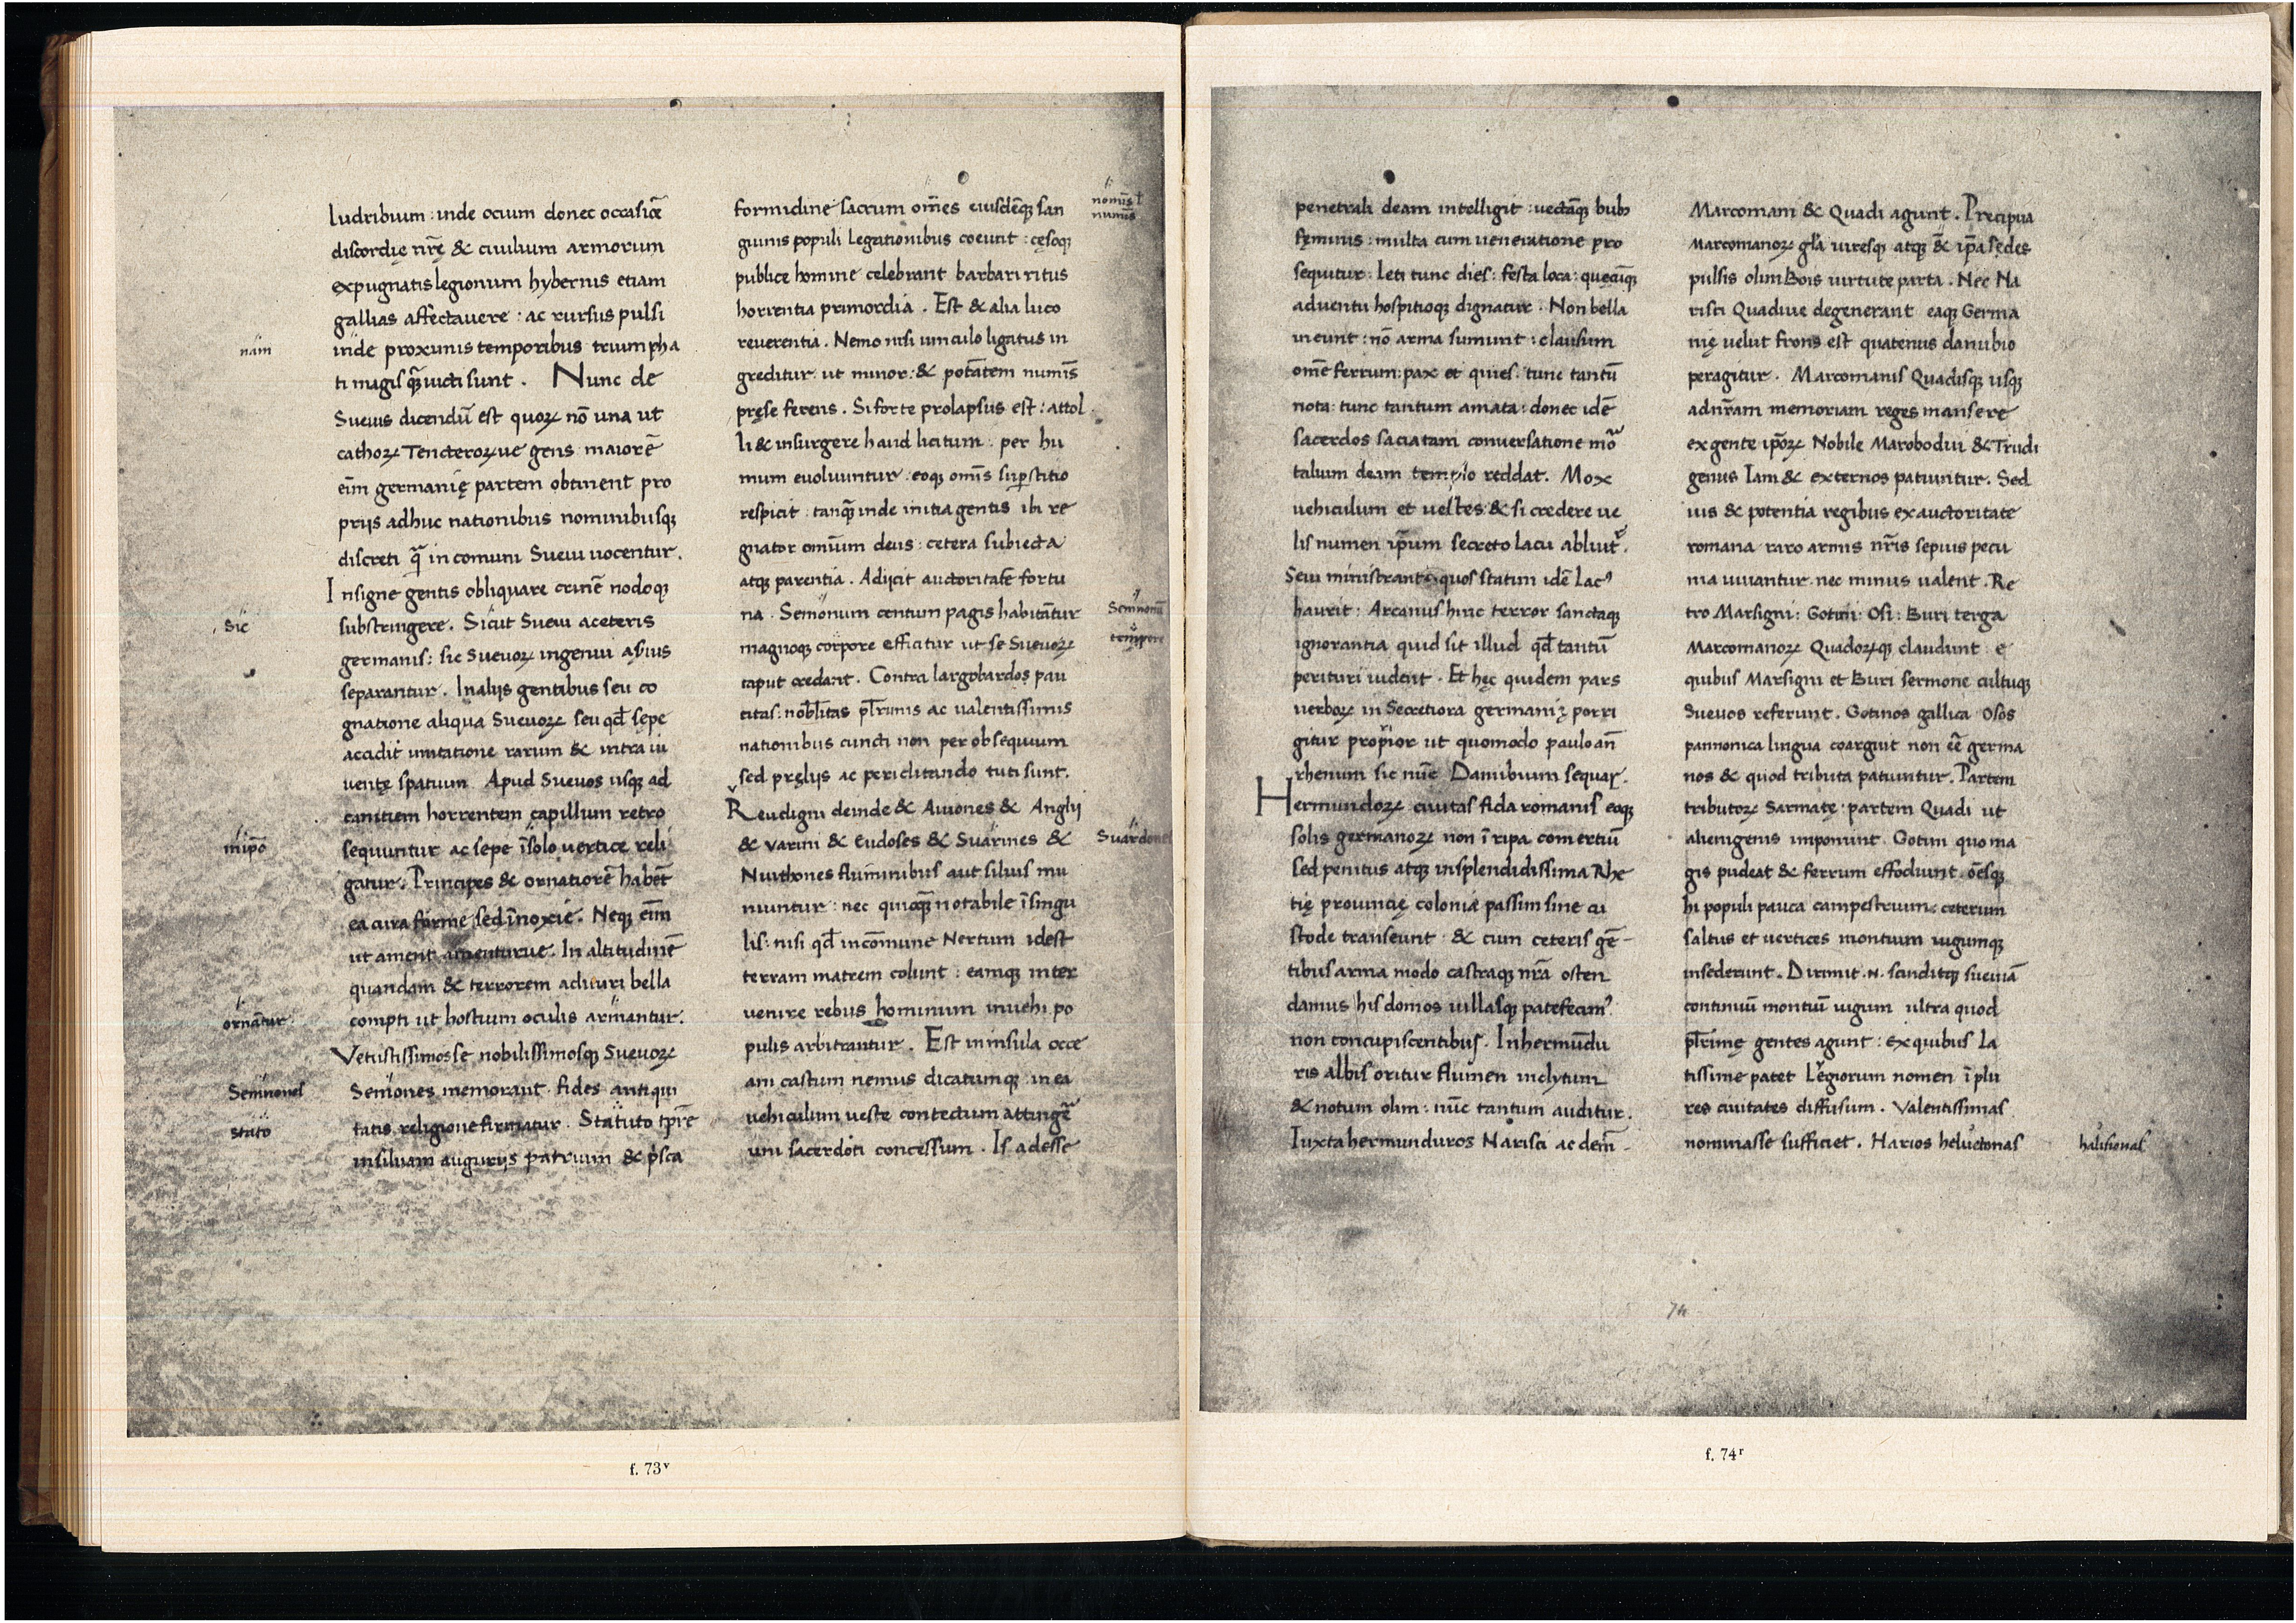 ludribuum : inde ocium donec occasiōe
discordię nr̄ę & ciuilium armorum
expugnatis legionum hybernis etiam
gallias affectauere : ac rursus pulsi
nam
inde proximis temporibus triumpha
ti magis q̄ uicti sunt . Nunc de
Sueuis dicendū est quoꝝ nō una ut
cathoꝝ Tencteroꝝue gens maiorē
eīm germanię partem obtinent pro
prijs adhuc nationibus nominibusq;
discreti q̄ in comuni Sueui uocentur .
Insigne gentis obliquare crinē nodoq;
sic
substringere . Sicut Sueui aceteris
germanis : sic Sueuoꝝ ingenui a
separantur . Inalijs gentibus seu co
gnatione aliqua Sueuoꝝ seu qđ sępe
accidit imitatione rarum & intra iu
uentę spatium Apud Sueuos usq; ad
canitiem horrentem capillum retro
sequuntur ac sepe ī solo uertice reli
gatur . Principes & ornatiorē habēt
ea cura forme sed īnoxie . Neq; eīm
ut ament amenturue . In altitudinē
quandam & terrorem adituri bella
ornātur
compti ut hostium oculis armantur .
Vetustissimosse nobilissimosq; Sueuoꝝ
Semnones
Semones memorant fides antiqui
stato
tatis religione firmatur . Statuto tp̄re
insiluam augurijs patrum & p̄sca
formidine sacrum om̄es eiusdēq; san
nomīs ł
numīs
guinis populi legationibus coeunt : cesoq;
publice homine celebrant barbari ritus
horrentia primordia . Est & alia luco
reuerentia . Nemo nisi uinculo ligatus in
greditur ut minor : & potātem numīs
pręse ferens . Siforte prolapsus est : attol
li & insurgere haud licitum : per hu
mum euoluuntur eoq; omīs supstitio
respicit : tanq̄ inde initia gentis ibi re
gnator omīum deus : cetera subiecta
atq; parentia . Adijcit auctoritatē fortu
na . Semonum centum pagis habitātur
Semnonū
magnoq; corpore efficitur ut se Sueuoꝝ
tempore
caput credant . Contra largobardos pau
citas : nobl̄itas pl̄rimis ac ualentissimis
nationibus cincti non per obsequium
sed pręlijs ac periclitando tuti sunt .
Reudigni deinde & Auiones & Anglij
& Varini & Eudoses & Suarines &
Suardones
Nuithones fluminibus aut siluis mu
niuntur : nec quicq̄ notabile ī singu
lis : nisi qđ incōmune Nertum idest
terram matrem colunt : eamq; inter
uenire rebus hominum inuehi po
pulis arbitrantur . Est ininsula occe
ani castum nemus dicatumq; in ea
uehiculum ueste contectum attingē
uni sacerdoti concessum . Is adesse
f. 73ᵛ
penetrali deam intelligit : uectāq; bub;
feminis : multa cum ueneratione pro
sequitur : Leti tunc dies : festa loca : quęcūq;
aduentu hospitioq; dignatur . Non bella
ineunt : nō arma sumunt : clausum
om̄e ferrum : pax et quies : tunc tantū
nota : tunc tantum amata : donec idē
sacerdos saciatam conuersatione mō
talium deam templo reddat . Mox
uehiculum et uestes & si credere ue
lis numen ip̄um secreto lacu abluit̄ .
Serui ministrant quos statim idē lac⁹
haurit : Arcanus hinc terror sanctaq;
ignorantia quid sit illud qđ tantū
perituri uident . Et hęc quidem pars
uerboꝝ in Secretiora germanię porri
gitur propior ut quomodo paulo an̄
rhenum sic nūc Danubium sequar .
Hermundoꝝ ciuitas fida romanis eoq;
solis germanoꝝ non ī ripa comertiū
sed penitus atq; insplendidissima Rhe
tię prouincię colonia passim sine cu
stode transeunt & cum ceteris gē-
tibus arma modo castraq; nr̄a osten
damus his domos uillasq; patefecim⁹
non concupiscentibus . Inhermūdu
ris albis oritur flumen inclytum
& notum olim : nūc tantum auditur .
Iuxta hermunduros Narisci ac dein̄ -
Marcomani & Quadi agunt . Precipua
Marcomanoꝝ gl̄a uiresq; atq; & ip̄a sedes
pulsis olim Bois uirtute parta . Nec Na
risti Quadiue degenerant eaq; Germa
nię uelut frons est quatenus danubio
peragitur . Marcomanis Quadisq; usq;
adnr̄am memoriam reges mansere
ex gente ip̄oꝝ Nobile Marobodui & Trudi
genus Iam & externos patiuntur . Sed
uis & potentia regibus ex auctoritate
romana raro armis nr̄is sepius pecu
nia iuuantur nec minus ualent . Re
tro Marsigni : Gotini : Osi : Buri terga
Marcomanoꝝ Quadoꝝq; claudunt : e
quibus Marsigni et Buri sermone cultuq;
Sueuos referunt . Gotinos gallica Osos
pannonica lingua coarguit non eē germa
nos & quod tributa patiuntur . Partem
tributoꝝ Sarmatę partem Quadi ut
alienigenis imponunt . Gotini quo ma
gis pudeat & ferrum effodiunt . oēsq;
hi populi pauca campestrium : ceterum
saltus et uertices montium iugumq;
insederunt . Dirimit .N. scinditq; sueuiā
continuū montiū iugum ultra quod
pl̄rimę gentes agunt : ex quibus La
tissime patet Legiorum nomen ī plu
res ciuitates diffusum . Valentissimas
nominasse sufficiet . Harios heluetonas
halisionas
74
f. 74ʳ